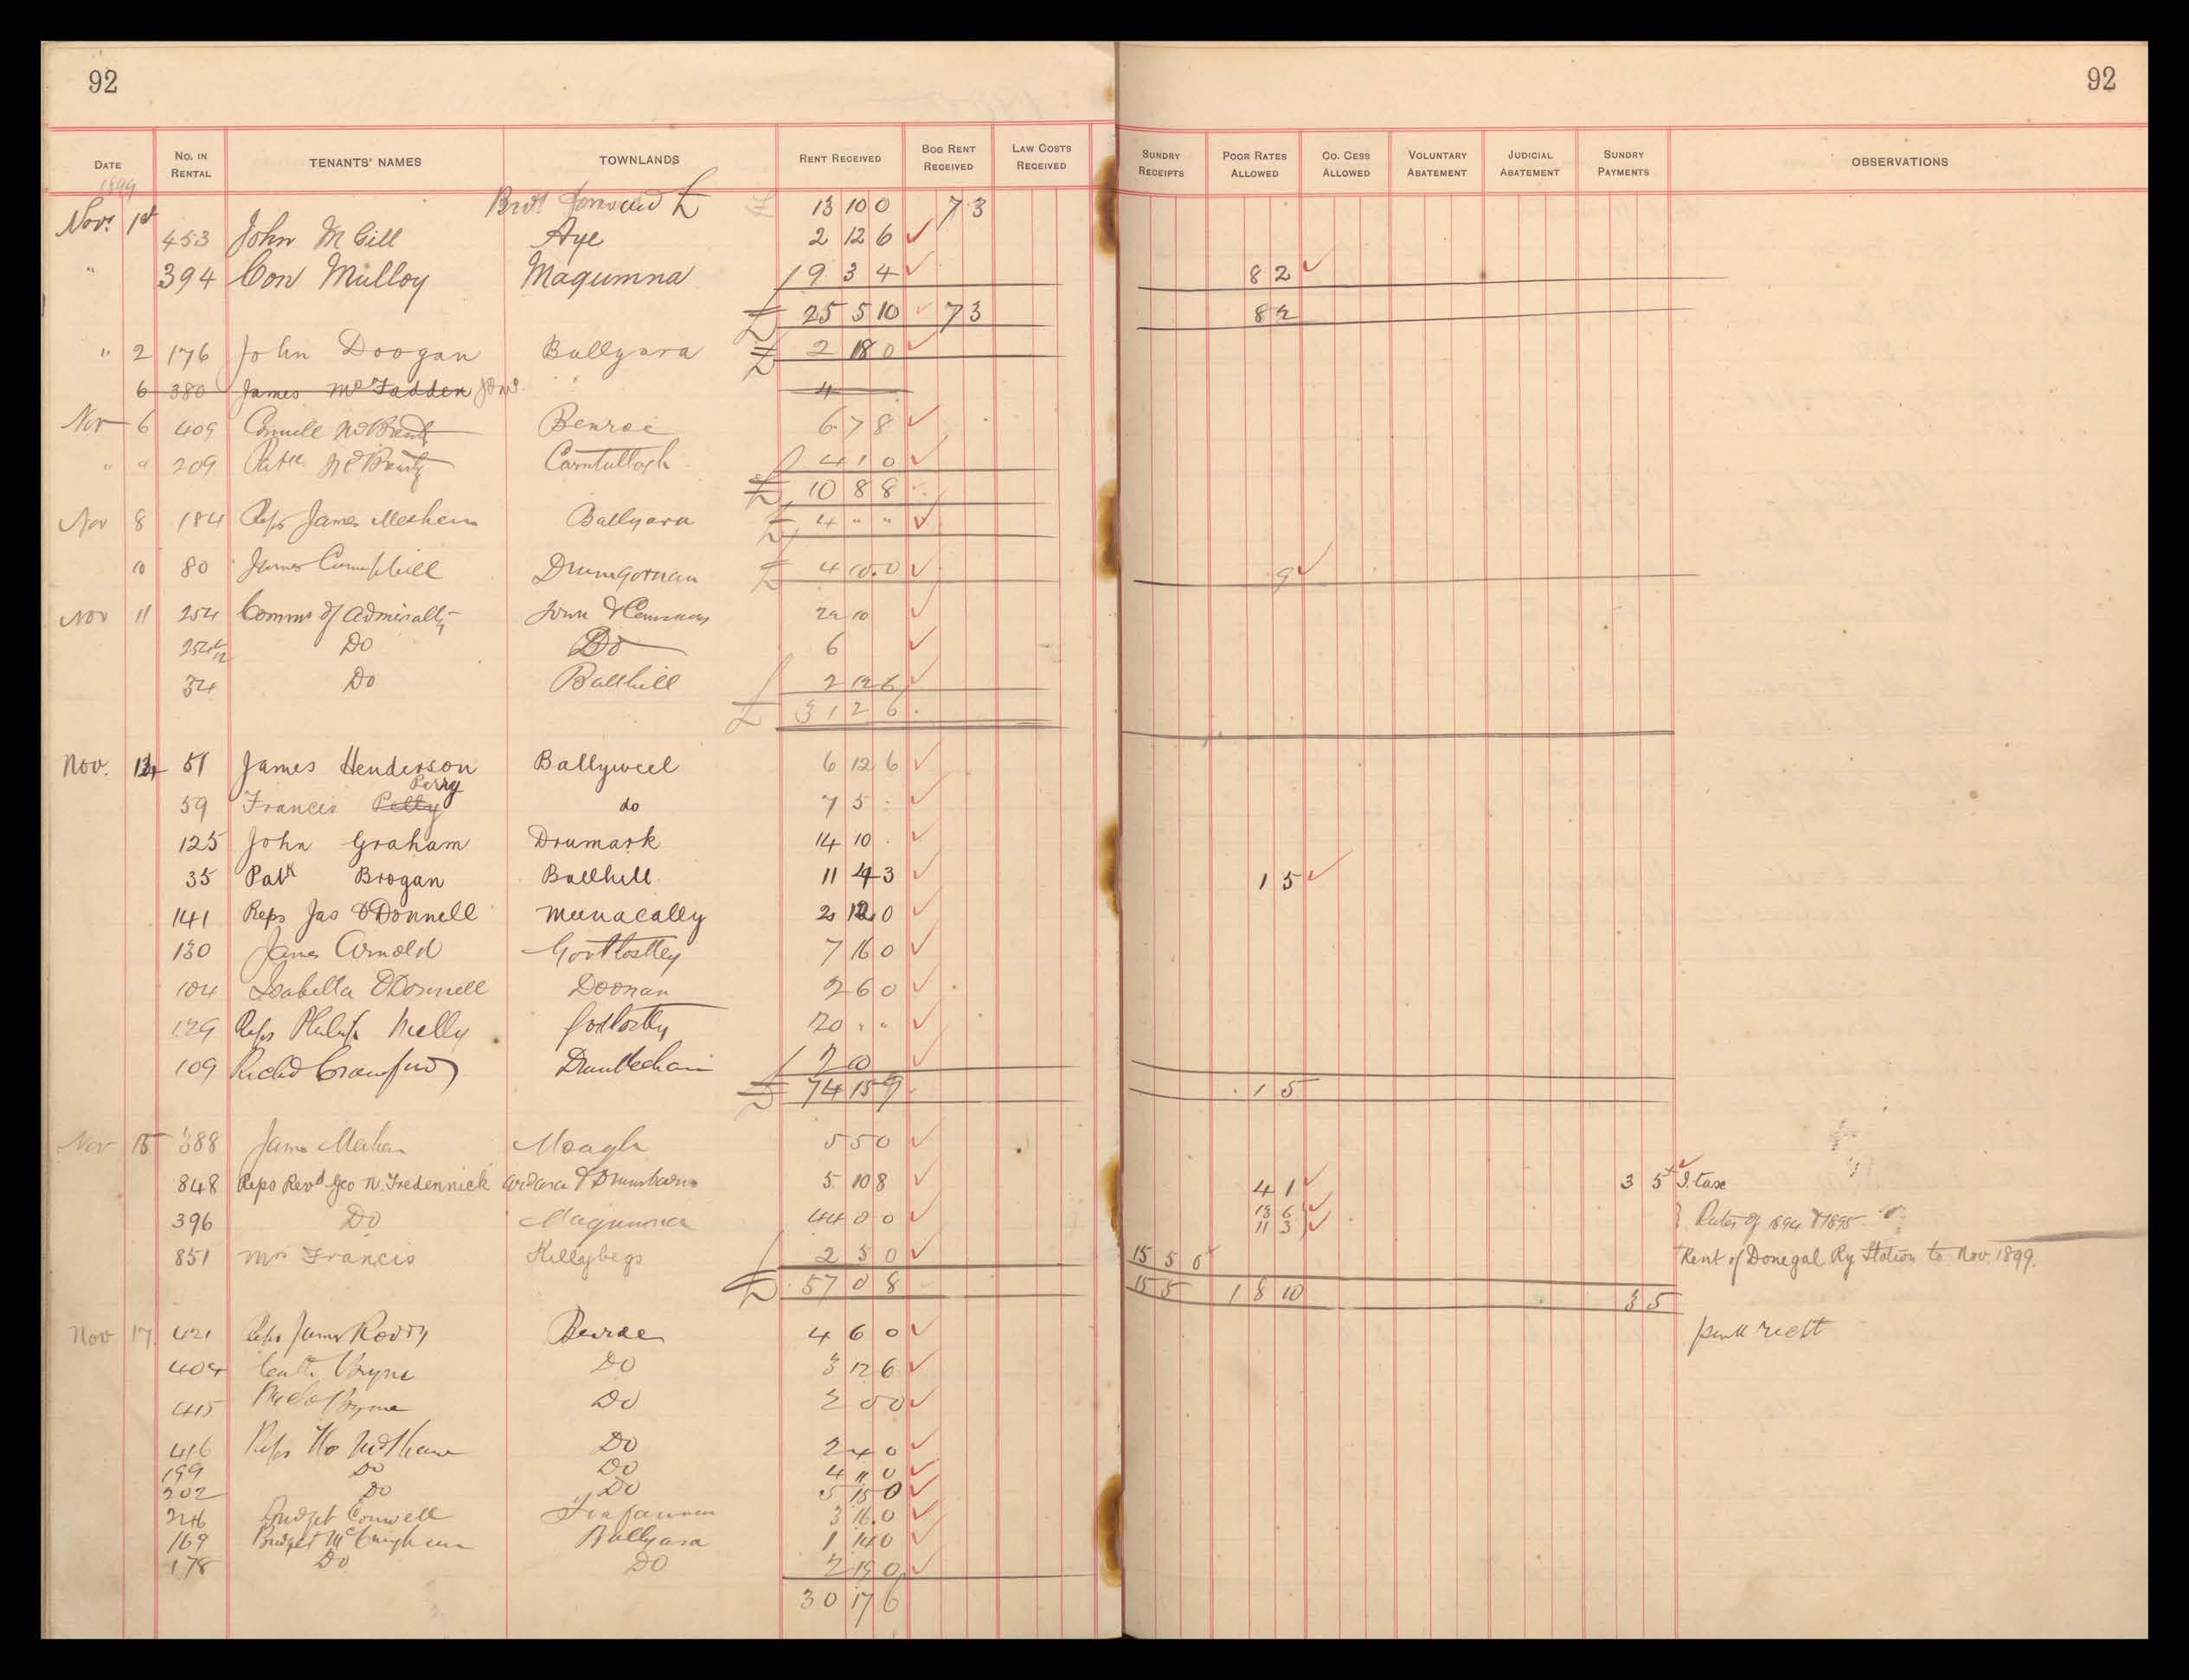 92 92
DATE NO. IN RENTAL TENANTS' NAMES TOWNLANDS RENT RECEIVED BOG RENT RECEIVED LAW COSTS RECEIVED SUNDRY RECEIPTS POOR RATES ALLOWED CO. CESS ALLOWED VOLUNTARY ABATEMENT JUDICIAL ABATEMENT SUNDRY PAYMENTS OBSERVATIONS
1899
Brot forward £ 13 10 0 7 3
Novr 1st 453 John McGill Aye 2 12 6
" 394 Con Mulloy Magumna 9 3 4 8 2
£ 25 5 10 7 3 8 2
" 2 176 John Doogan Ballyara £ 2 18 0
6 380 James McFadden Jonn 4
Nov 6 409 Connell McBrearty Benroe 6 7 8
" " 209 Patk McBrearty Corntullagh 4 1 0
£ 10 8 8
Nov 8 184 Reps James Meehan Ballyara £ 4 " "
10 80 James Campbell Drumgornan £ 4 10 0 9
Nov 11 254 Comms of Admiralty Town & Commons 22 10
254 1/2 Do Do 6
34 Do Ballhill 2 12 6
£ 31 2 6
Nov. 14 51 James Henderson Ballyweel 6 12 6
Perry
59 Francis Petty do 7 5
125 John Graham Drumark 14 10
35 Patk Brogan Ballhill 11 4 3 1 5
141 Reps Jas O'Donnell Meenacally 2 12 0
130 James Arnold Gortlostley 7 16 0
104 Isabella O'Donnell Doonan 2 6 0
129 Reps Philip Melly Gortlostly 20 " "
109 Richd Crawford 2 10
£ 74 15 9 1 5
Nov 15 388 James Meehan Meagh 5 5 0
848 Reps Revd Geo N. Tredennick Ardara & Drumbarn 5 10 8 4 1 3 5 I. tax
396 Do Magumna 44 0 0 13 6
11 3 } Rates of 1894 & 1895
851 Mrs Francis Killybegs 2 5 0 15 5 0 Rent of Donegal Ry Station to Nov. 1899.
£ 57 0 8 15 5 1 8 10 3 5
Nov 17 421 Reps James Roddy Benroe 4 6 0
404 Byrne Do 3 12 6
415 Byrne Do 2 0 0
416 Reps Do 2 4 0
199 Do Do 4 11 0
202 Do Do 5 15 0
246 Bridget Conwell 3 16 0
169 Bridget McCunigham Ballyara 1 14 0
178 Do Do 2 19 0
30 17 6